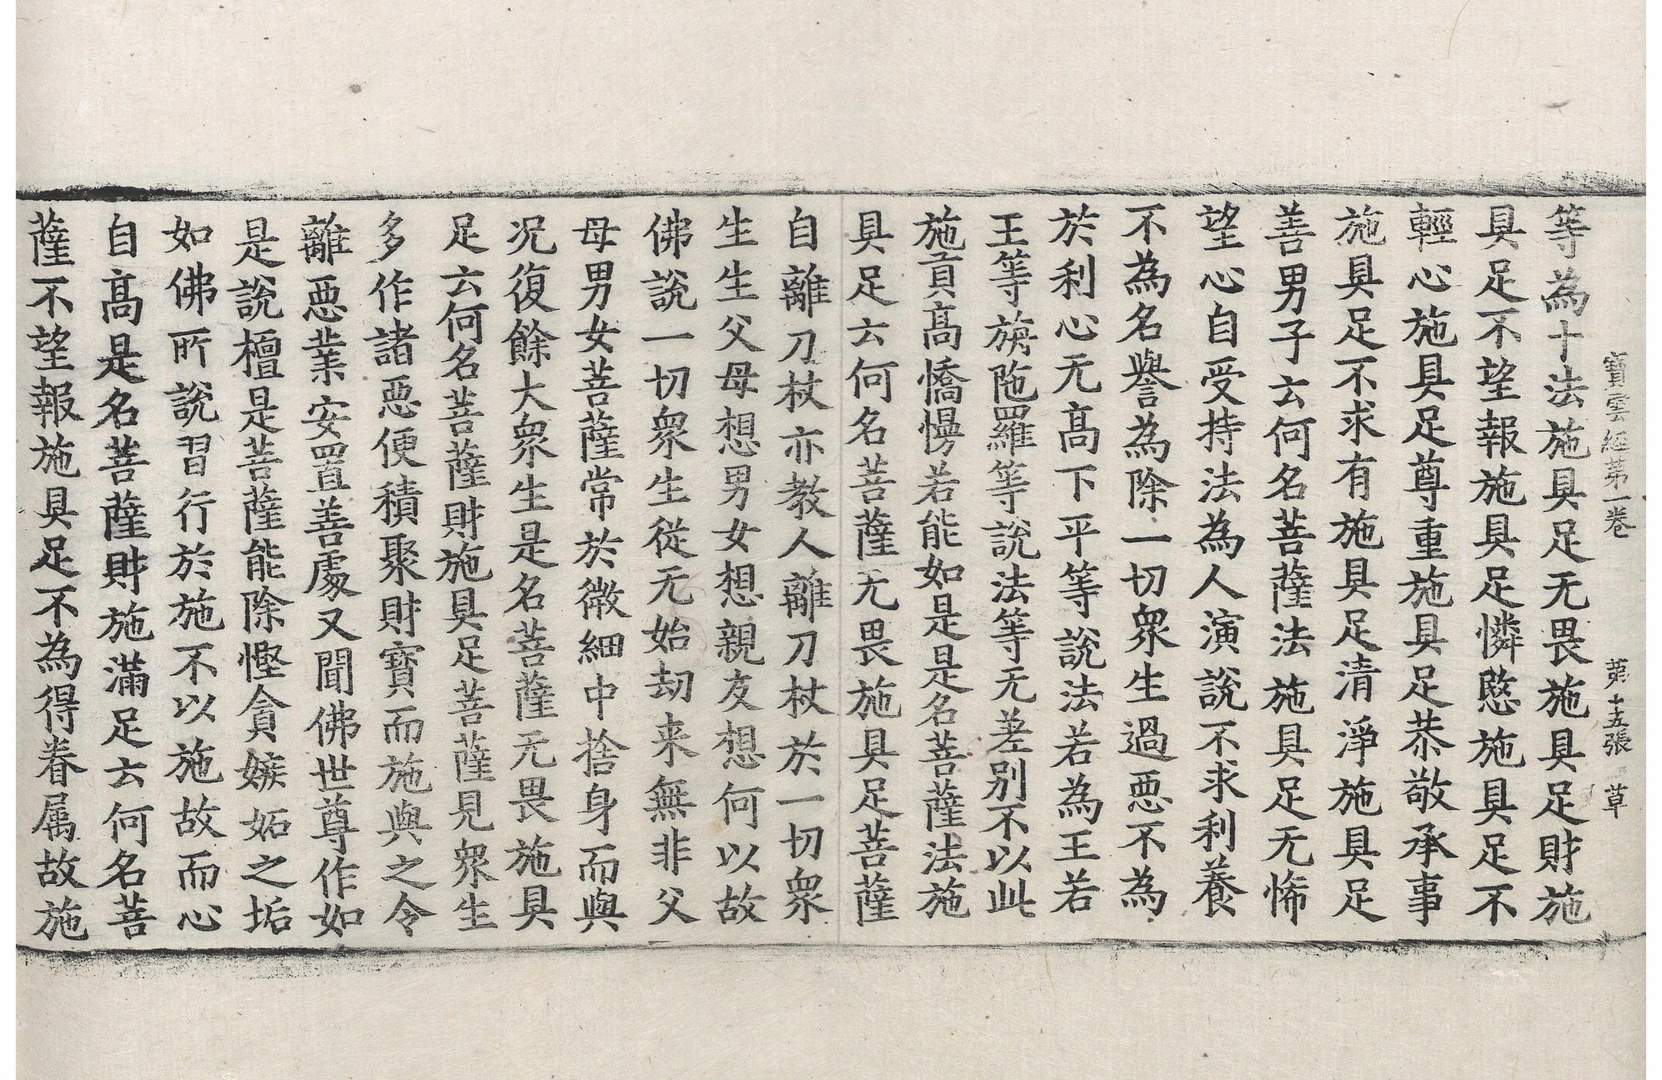 寶雲經第一卷 第十五張 草
等為十法施具足无畏施具足財施
具足不望報施具足憐愍施具足不
輕心施具足尊重施具足恭敬承事
施具足不求有施具足清淨施具足
善男子云何名菩薩法施具足无悕
望心自受持法為人演說不求利養
不為名譽為除一切衆生過惡不為
於利心无高下平等說法若為王若
王等旃陁羅等說法等无差別不以此
施貢高憍慢若能如是是名菩薩法施
具足云何名菩薩无畏施具足菩薩
自離刀杖亦教人離刀杖於一切衆
生生父母想男女想親友想何以故
佛說一切衆生從无始劫来無非父
母男女菩薩常於微細中捨身而與
况復餘大衆生是名菩薩无畏施具
足云何名菩薩財施具足菩薩見衆生
多作諸惡便積聚財寶而施與之令
離惡業安置善處又聞佛世尊作如
是說檀是菩薩能除慳貪嫉妬之垢
如佛所說習行於施不以施故而心
自高是名菩薩財施滿足云何名菩
薩不望報施具足不為得眷属故施